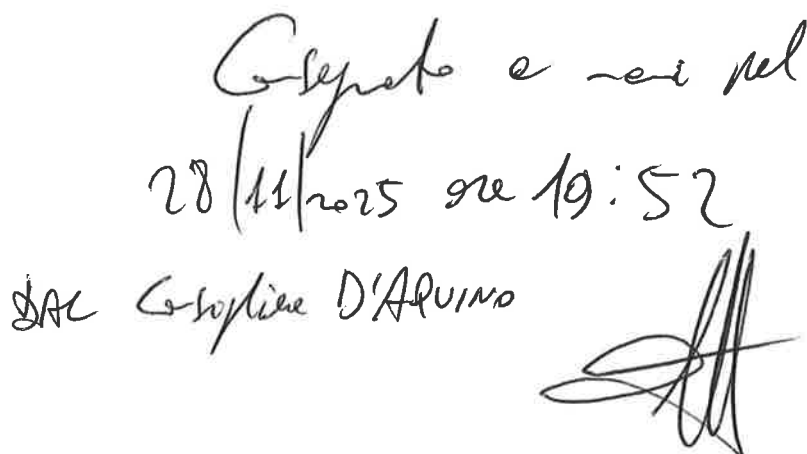 Consegnato a mani nel
28/11/2025 ore 19:52
DAL Consigliere D'AQUINO